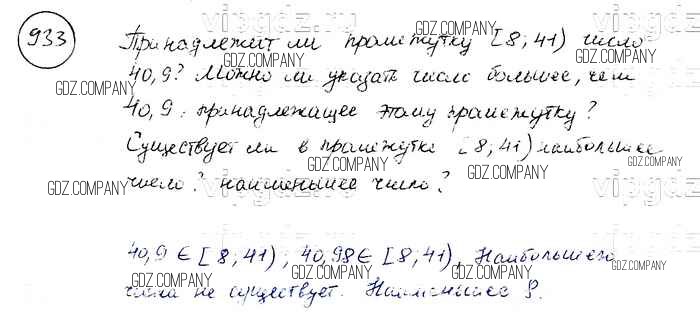 933
Принадлежит ли промежутку [8; 41) число
40,9? Можно ли указать число большее, чем
40,9, принадлежащее этому промежутку?
Существует ли в промежутке [8; 41) наибольшее
число? наименьшее число?
40,9 ∈ [8; 41); 40,98 ∈ [8; 41), Наибольшего
числа не существует. Наименьшее 8.